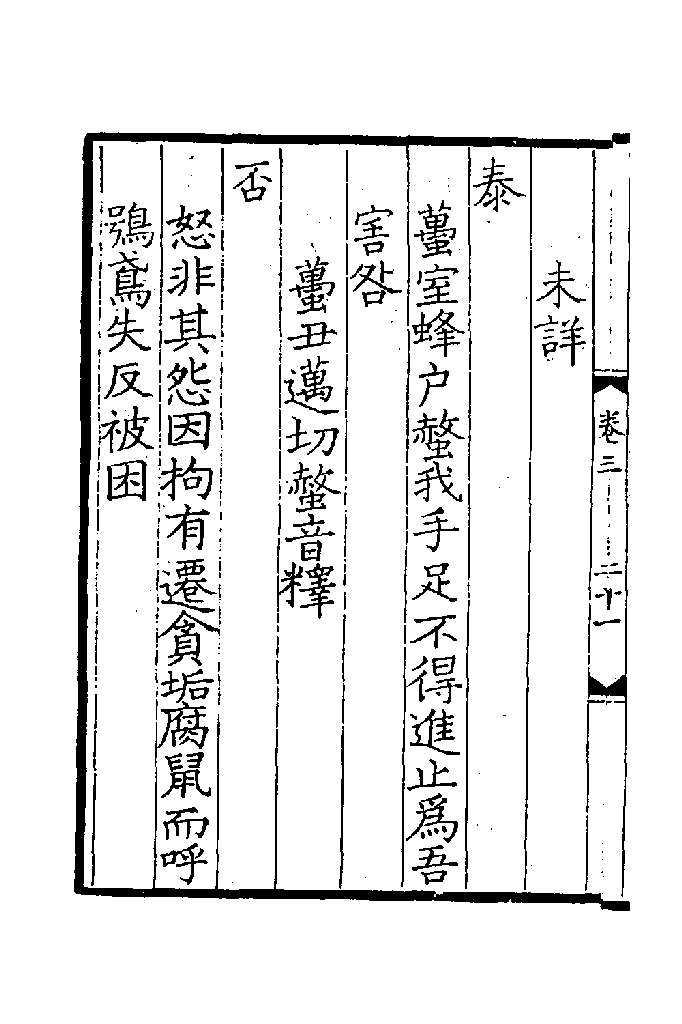 卷三
二十一
未詳
泰
蠆室蜂户螫我手足不得進止爲吾
害咎
蠆丑邁切螫音釋
否
怒非其怨因拘有遷貪垢腐鼠而呼
鴞鳶失反被困